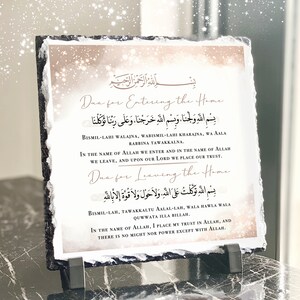 بِسْمِ اللَّهِ الرَّحْمَٰنِ الرَّحِيمِ
Dua for Entering the Home
بِسْمِ اللَّهِ وَلَجْنَا، وَبِسْمِ اللَّهِ خَرَجْنَا، وَعَلَى رَبِّنَا تَوَكَّلْنَا
Bismil-lahi walajna, wabismil-lahi kharajna, wa Aala
rabbina tawakkalna.
In the name of Allah we enter and in the name of Allah
we leave, and upon our Lord we place our trust.
Dua for Leaving the Home
بِسْمِ اللَّهِ تَوَكَّلْتُ عَلَى اللَّهِ، وَلَا حَوْلَ وَلَا قُوَّةَ إِلَّا بِاللَّهِ
Bismil-lah, tawakkaltu Aalal-lah, wala hawla wala
quwwata illa billah.
In the name of Allah, I place my trust in Allah, and
there is no might nor power except with Allah.